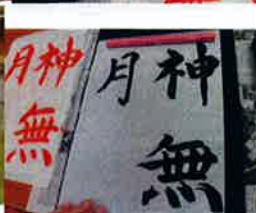 神無
月
神無
月